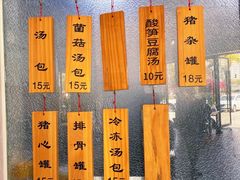 汤包
15元
菌菇汤包
15元
酸笋豆腐汤
10元
猪杂罐
18元
猪心罐
排骨罐
冷冻汤包